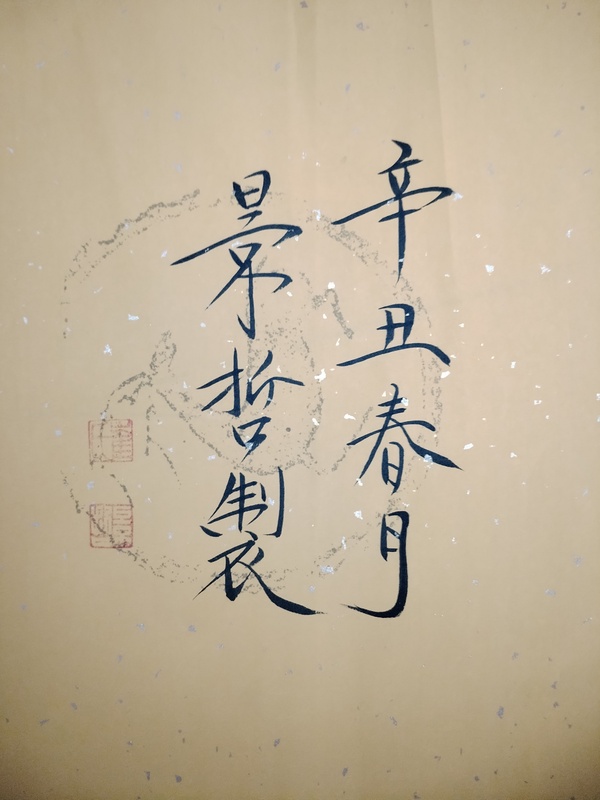 辛丑春月
景哲製